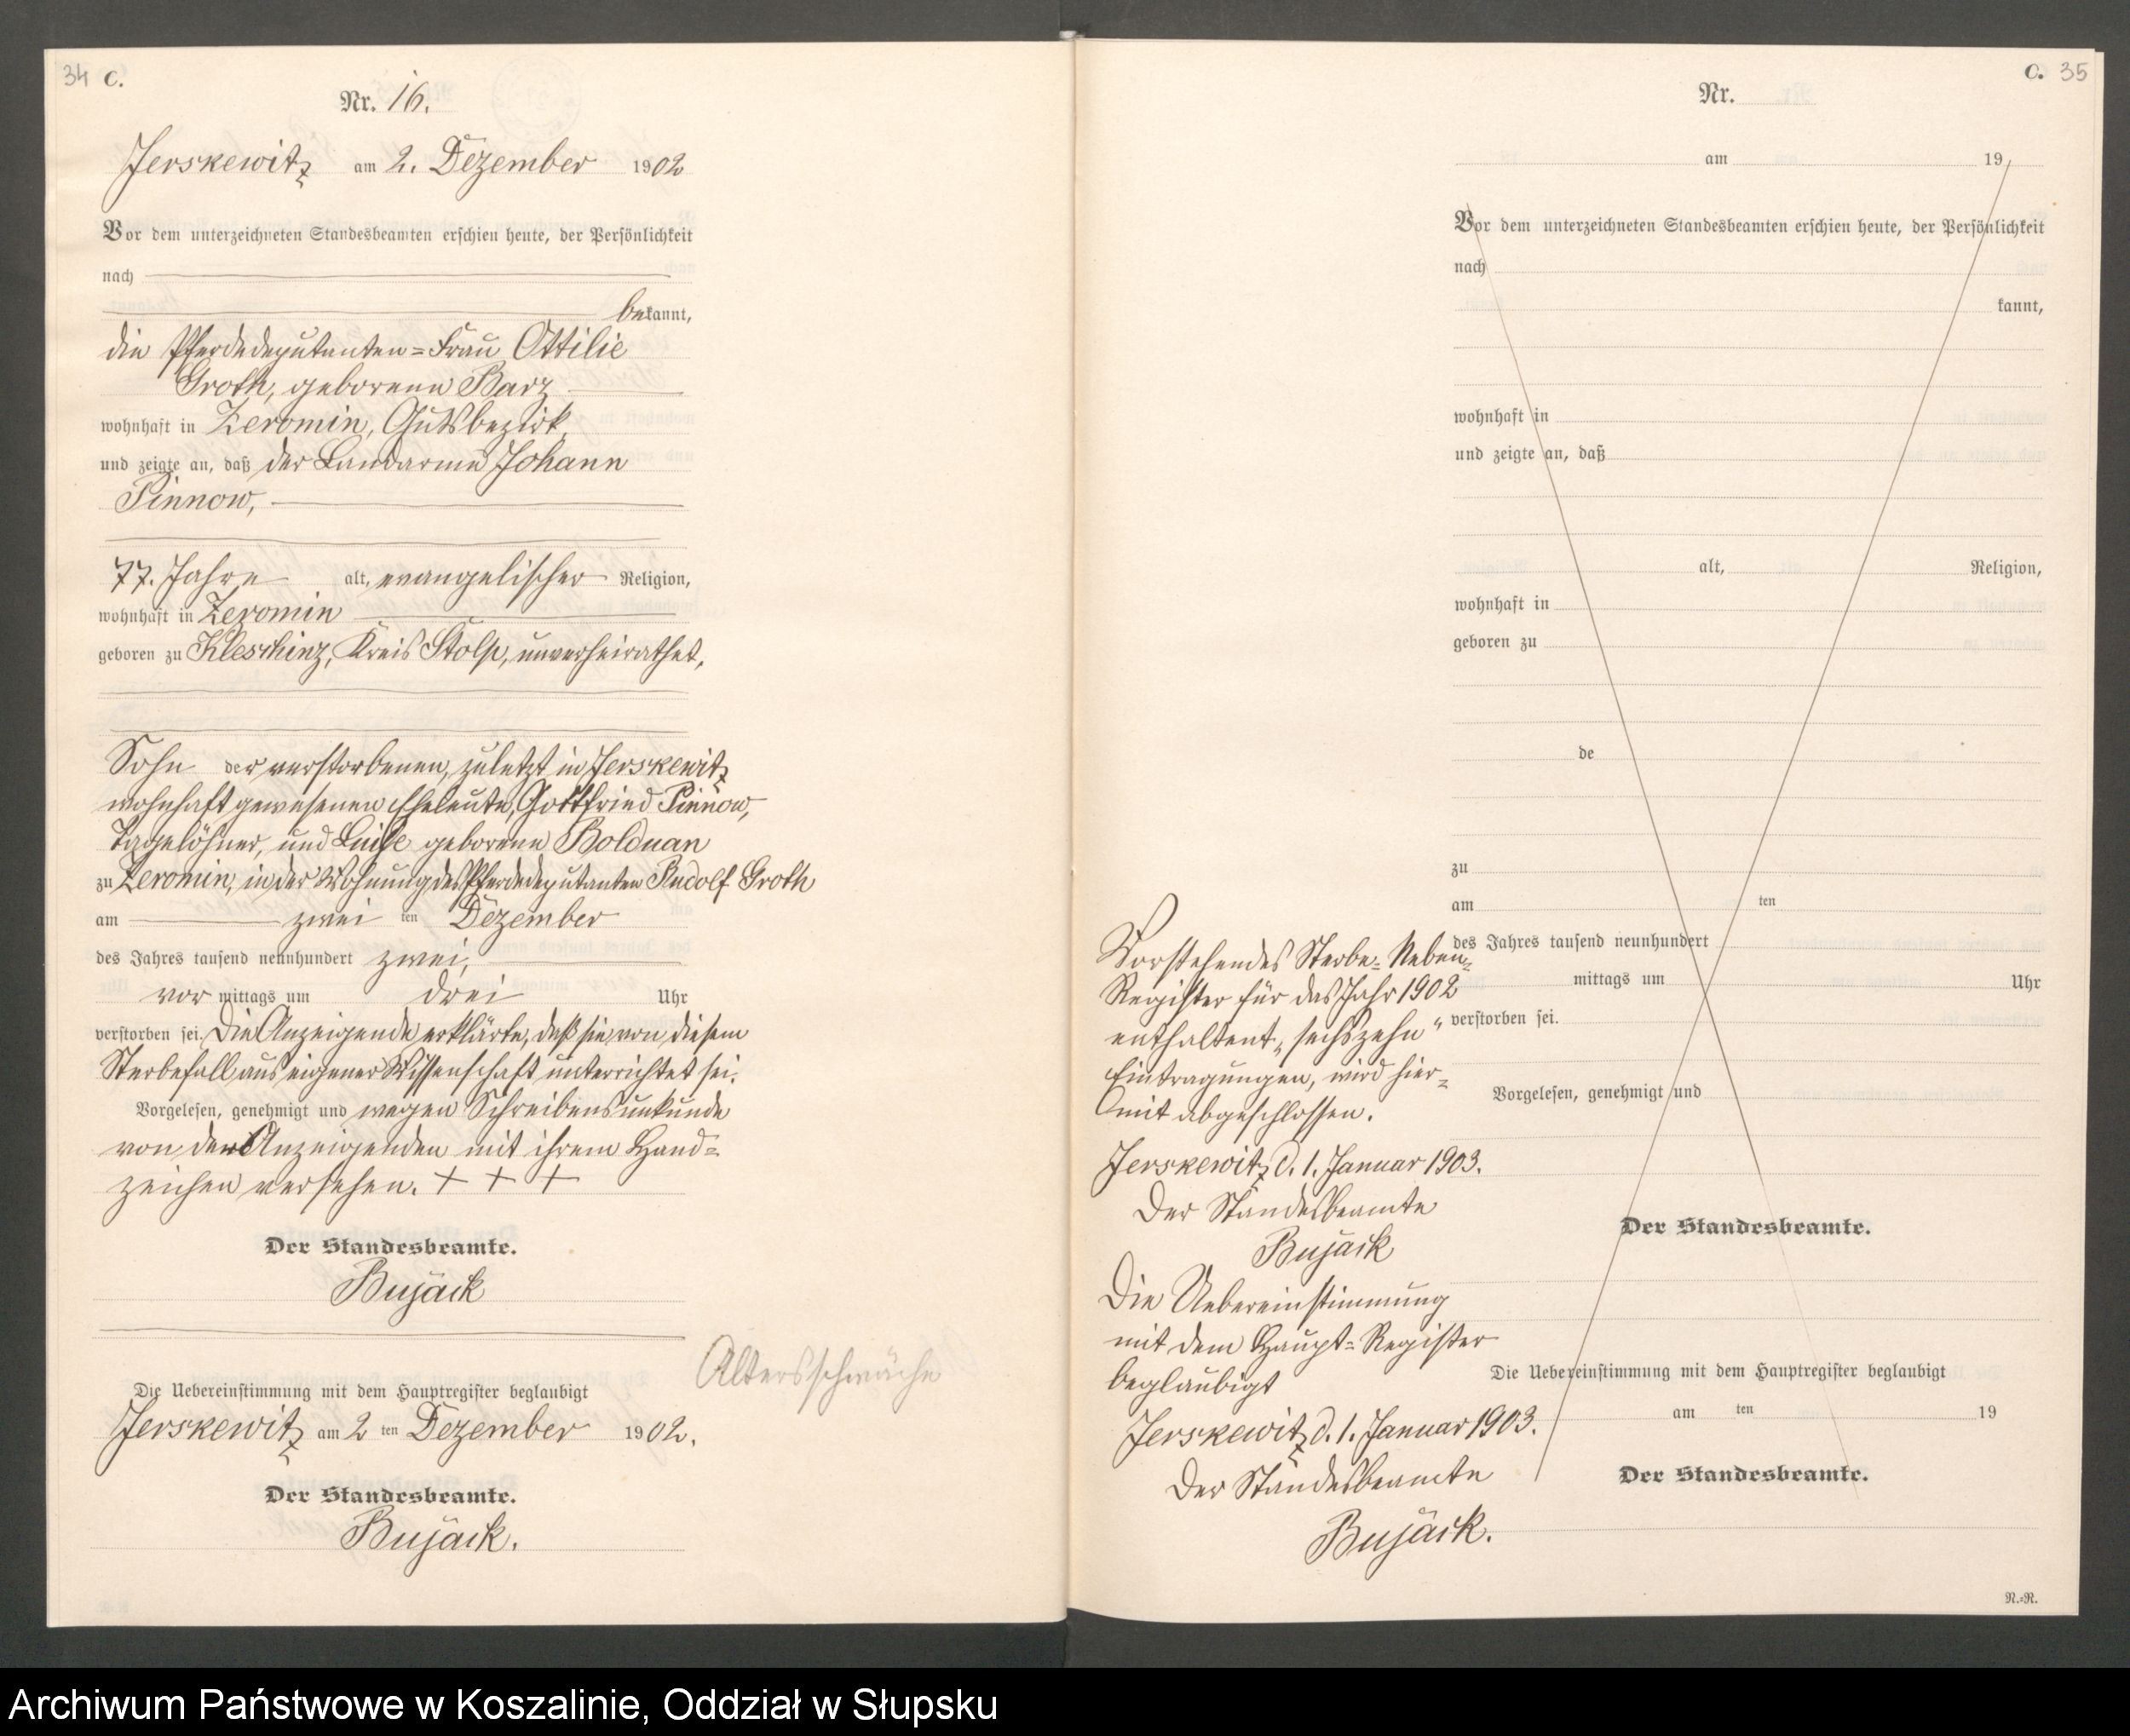 34 C.
Nr. 16.
Jerskewitz am 2. Dezember 1902
Vor dem unterzeichneten Standesbeamten erschien heute, der Persönlichkeit
nach
bekannt,
die Pferdedeputanten=Frau Ottilie
Groth, geborene Barz
wohnhaft in Zeromin, Gutsbezirk,
und zeigte an, daß der Landarme Johann
Pinnow,
77. Jahre alt, evangelischer Religion,
wohnhaft in Zeromin
geboren zu Kleschinz, Kreis Stolp, unverheirathet,
Sohn der verstorbenen, zuletzt in Jerskewitz
wohnhaft gewesenen Eheleute, Gottfried Pinnow,
Tagelöhner, und Luise geborene Bolduan
zu Zeromin, in der Wohnung des Pferdedeputanten Rudolf Groth
am zwei ten Dezember
des Jahres tausend neunhundert zwei,
vor mittags um drei Uhr
verstorben sei. Die Anzeigende erklärte, daß sie von diesem
Sterbefall aus eigener Wissenschaft unterrichtet sei.
Vorgelesen, genehmigt und wegen Schreibensunkunde
von der Anzeigenden mit ihrem Hand=
zeichen versehen. + + +
Der Standesbeamte.
Bujack
Altersschwäche
Die Uebereinstimmung mit dem Hauptregister beglaubigt
Jerskewitz am 2 ten Dezember 1902.
Der Standesbeamte.
Bujack.
C. 35
Nr.
am 19
Vor dem unterzeichneten Standesbeamten erschien heute, der Persönlichkeit
nach
kannt,
wohnhaft in
und zeigte an, daß
alt, Religion,
wohnhaft in
geboren zu
de
zu
am ten
des Jahres tausend neunhundert
mittags um Uhr
verstorben sei.
Vorgelesen, genehmigt und
Der Standesbeamte.
Die Uebereinstimmung mit dem Hauptregister beglaubigt
am ten 19
Der Standesbeamte.
Vorstehendes Sterbe=Neben=
Register für das Jahr 1902
enthaltent „sechszehn“
Eintragungen, wird hier=
mit abgeschlossen.
Jerskewitz d. 1. Januar 1903.
Der Standesbeamte
Bujack
Die Uebereinstimmung
mit dem Haupt=Register
beglaubigt
Jerskewitz d. 1. Januar 1903.
Der Standesbeamte
Bujack.
N.=R.
Archiwum Państwowe w Koszalinie, Oddział w Słupsku